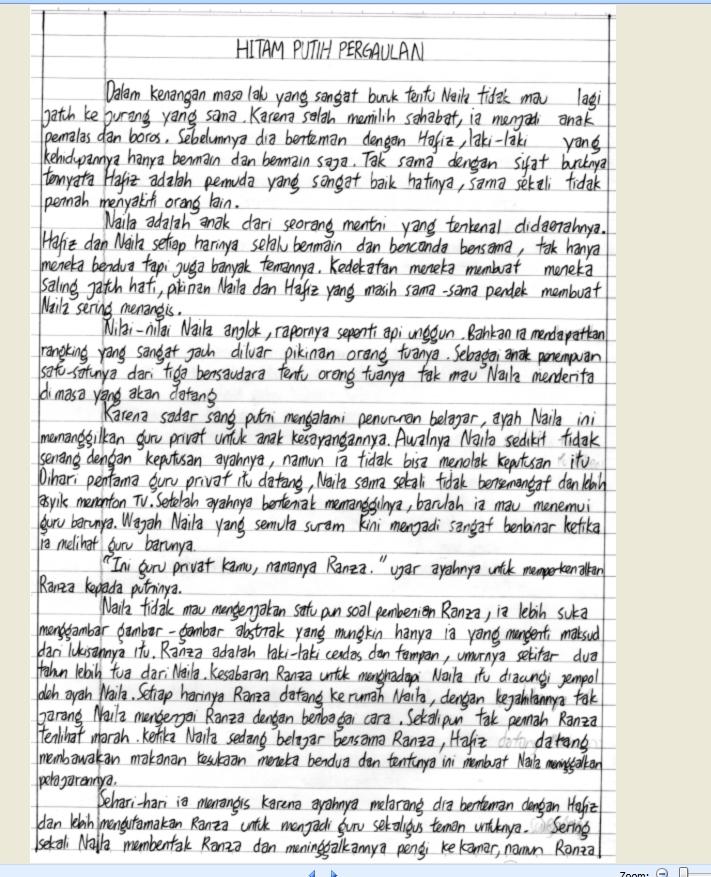 HITAM PUTIH PERGAULAN
Dalam kenangan masa lalu yang sangat buruk tentu Naila tidak mau lagi
jatuh ke jurang yang sama. Karena salah memilih sahabat, ia menjadi anak
pemalas dan boros. Sebelumnya dia berteman dengan Hafiz, laki-laki yang
kehidupannya hanya bermain dan bermain saja. Tak sama dengan sifat buruknya
ternyata Hafiz adalah pemuda yang sangat baik hatinya, sama sekali tidak
pernah menyakiti orang lain.
Naila adalah anak dari seorang mentri yang terkenal didaerahnya.
Hafiz dan Naila setiap harinya selalu bermain dan bercanda bersama, tak hanya
mereka berdua tapi juga banyak temannya. Kedekatan mereka membuat mereka
saling jatuh hati, pikiran Naila dan Hafiz yang masih sama-sama pendek membuat
Naila sering menangis.
Nilai-nilai Naila anjlok, rapornya seperti api unggun. Bahkan ia mendapatkan
rangking yang sangat jauh diluar pikiran orang tuanya. Sebagai anak perempuan
satu-satunya dari tiga bersaudara tentu orang tuanya tak mau Naila menderita
di masa yang akan datang
Karena sadar sang putri mengalami penurunan belajar, ayah Naila ini
memanggilkan guru privat untuk anak kesayangannya. Awalnya Naila sedikit tidak
senang dengan keputusan ayahnya, namun ia tidak bisa menolak keputusan itu
Dihari pertama guru privat itu datang, Naila sama sekali tidak bersemangat dan lebih
asyik menonton TV. Setelah ayahnya berteriak memanggilnya, barulah ia mau menemui
guru barunya. Wajah Naila yang semula suram kini menjadi sangat berbinar ketika
ia melihat guru barunya.
"Ini guru privat kamu, namanya Ranza." ujar ayahnya untuk memperkenalkan
Ranza kepada putrinya.
Naila tidak mau mengerjakan satu pun soal pemberian Ranza, ia lebih suka
menggambar gambar-gambar abstrak yang mungkin hanya ia yang mengerti maksud
dari lukisannya itu. Ranza adalah laki-laki cerdas dan tampan, umurnya sekitar dua
tahun lebih tua dari Naila. Kesabaran Ranza untuk menghadapi Naila itu diacungi jempol
oleh ayah Naila. Setiap harinya Ranza datang ke rumah Naila, dengan kejahilannya tak
jarang Naila mengerjai Ranza dengan berbagai cara. Sekalipun tak pernah Ranza
terlihat marah. Ketika Naila sedang belajar bersama Ranza, Hafiz datang
membawakan makanan kesukaan mereka berdua dan tentunya ini membuat Naila meninggalkan
pelajarannya.
Sehari-hari ia menangis karena ayahnya melarang dia berteman dengan Hafiz
dan lebih mengutamakan Ranza untuk menjadi guru sekaligus teman untuknya. Sering
sekali Naila membentak Ranza dan meninggalkannya pergi ke kamar, namun Ranza
Zoom: